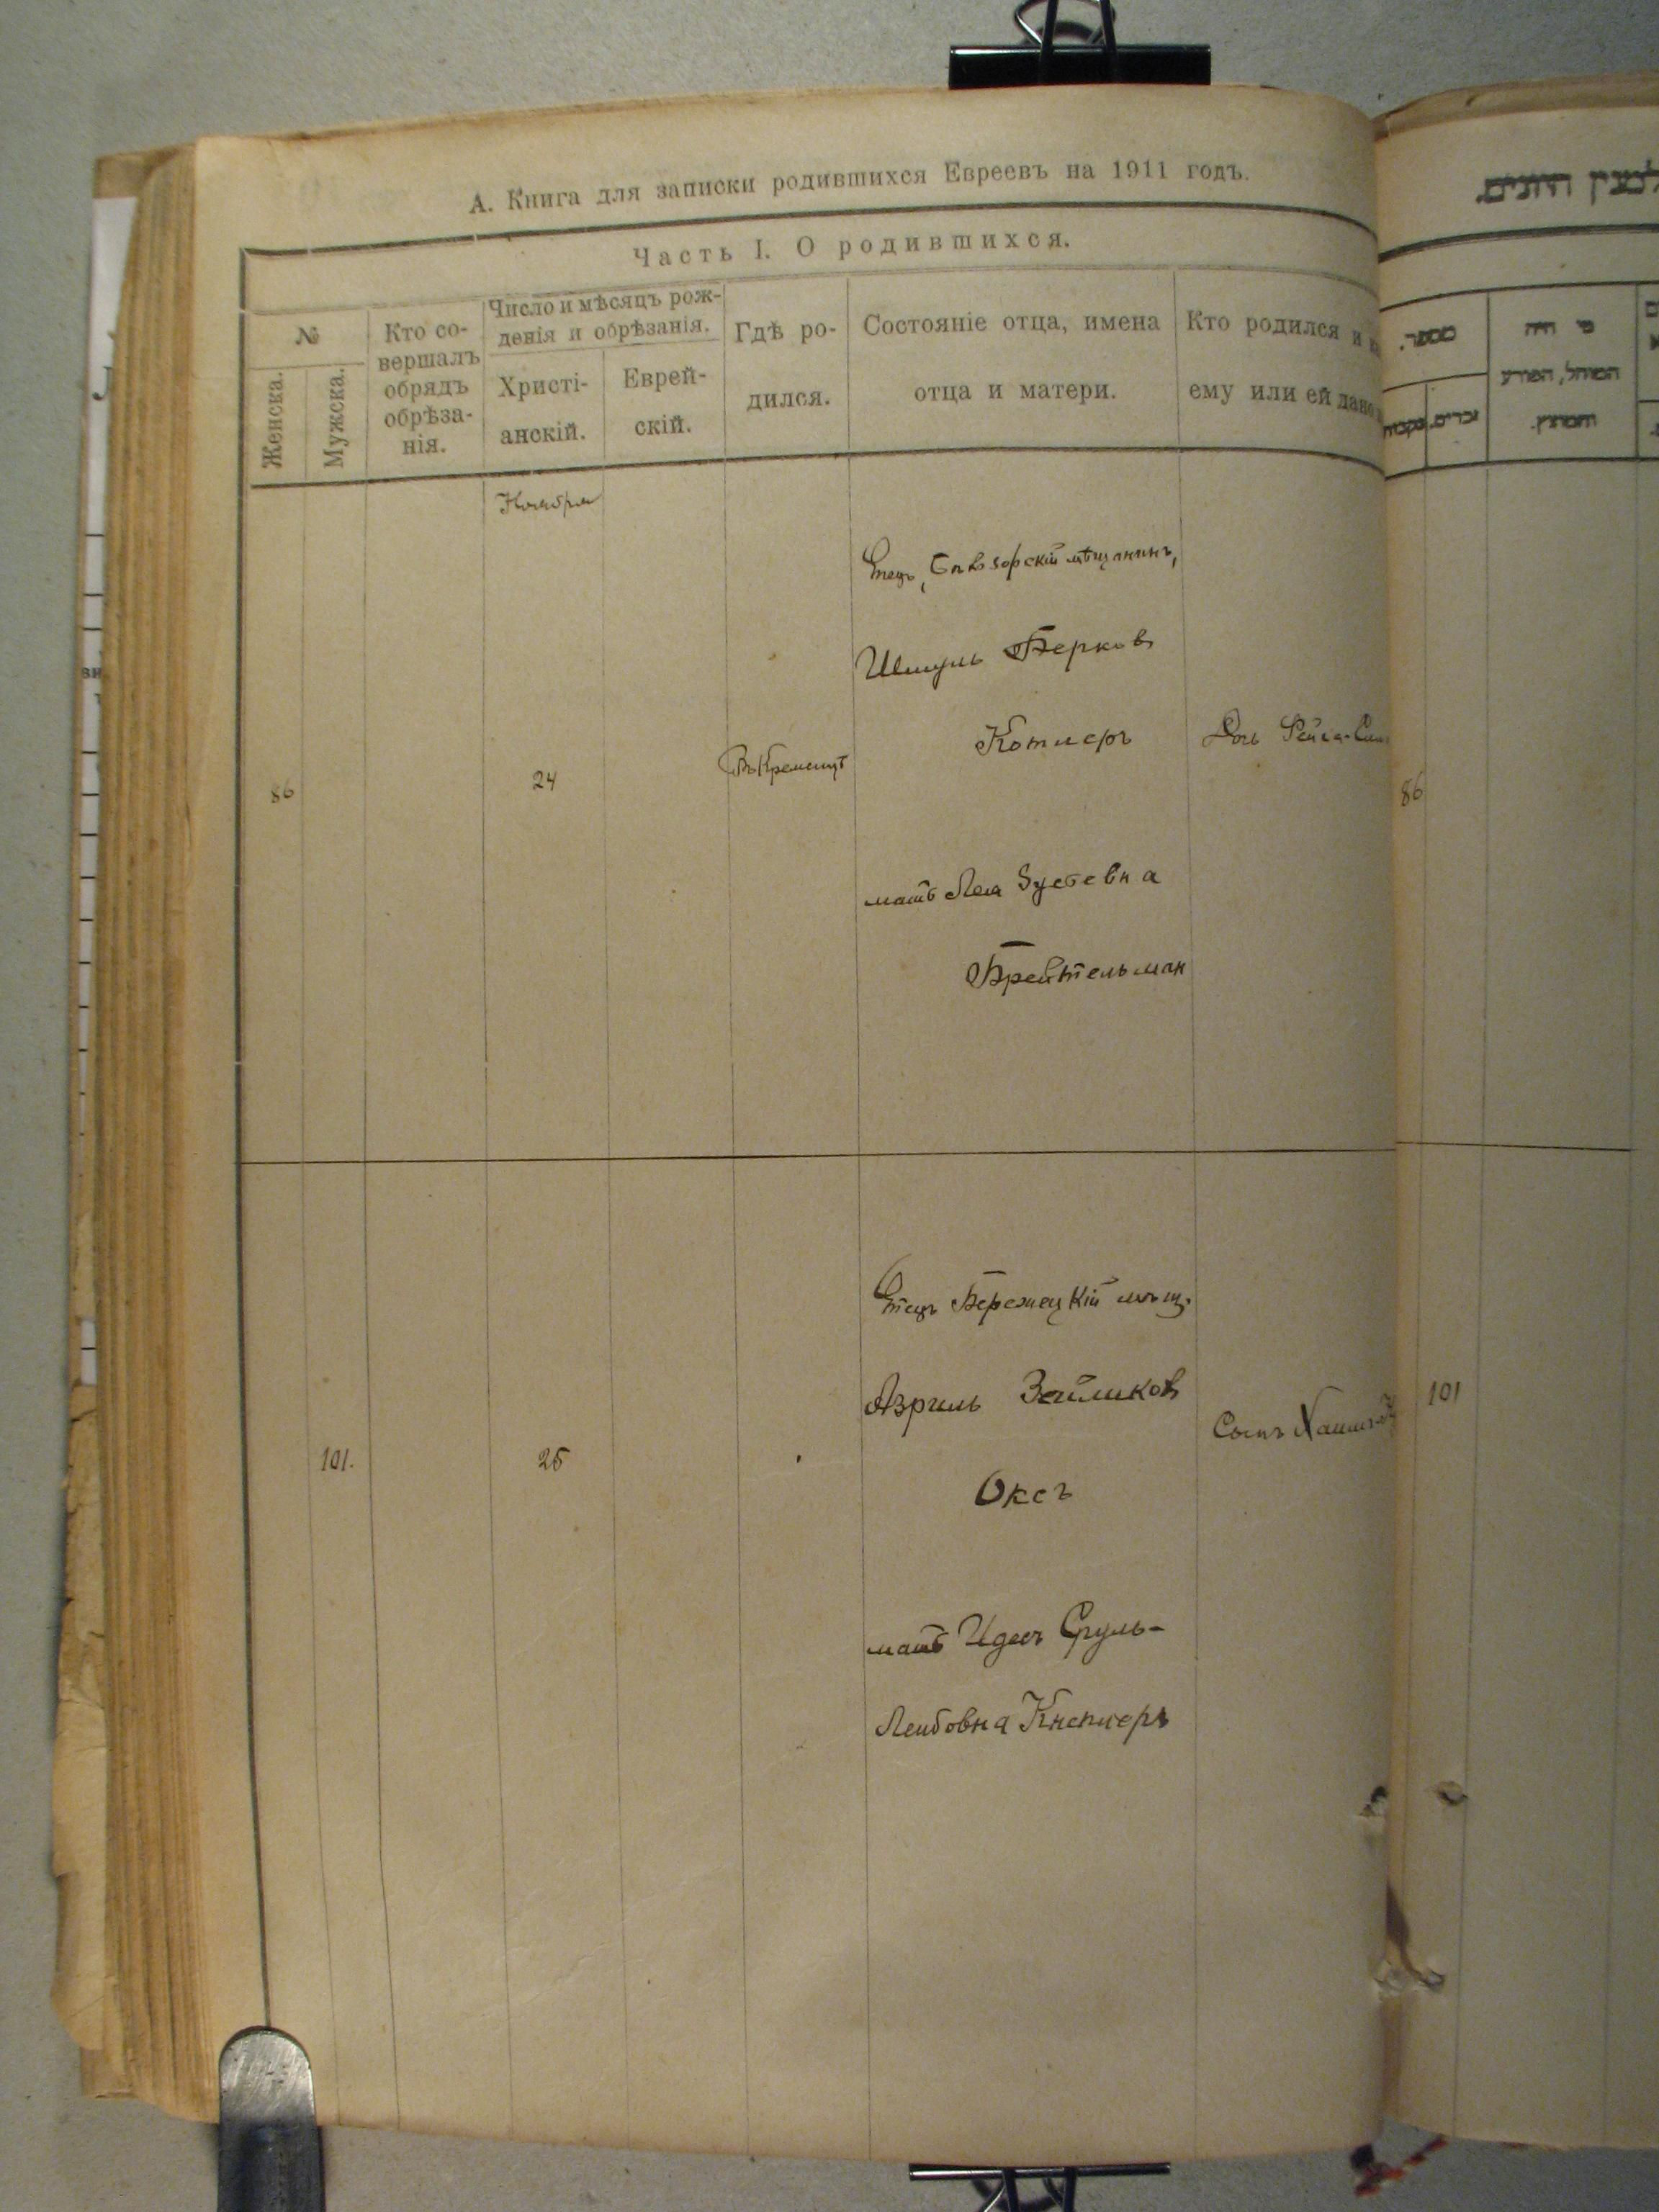 А. Книга для записки родившихся Евреевъ на 1911 годъ.
Часть I. О родившихся.
№
Женска.
Мужска.
Кто со-
вершалъ
обрядъ
обрѣза-
нія.
Число и мѣсяцъ рож-
денія и обрѣзанія.
Христі-
анскій.
Еврей-
скій.
Гдѣ ро-
дился.
Состояніе отца, имена
отца и матери.
Кто родился и
ему или ей дано
Ноября
86
24
Въ Кременцѣ
Отецъ, мѣщанинъ,
Шмуль Берков
Котлеръ
мать Лея Зусевна
Брейтельман
Дочь Рейза-
101.
25
Отецъ Бережецкій мѣщ.
Азриль Зейликов
Оксъ
мать Идесъ Сруль-
Лейбовна
Сынъ Хаимъ-
מספר.
זכרים.
נקבות
מי היה
המוהל, הפורע
והמוצץ.
86
101